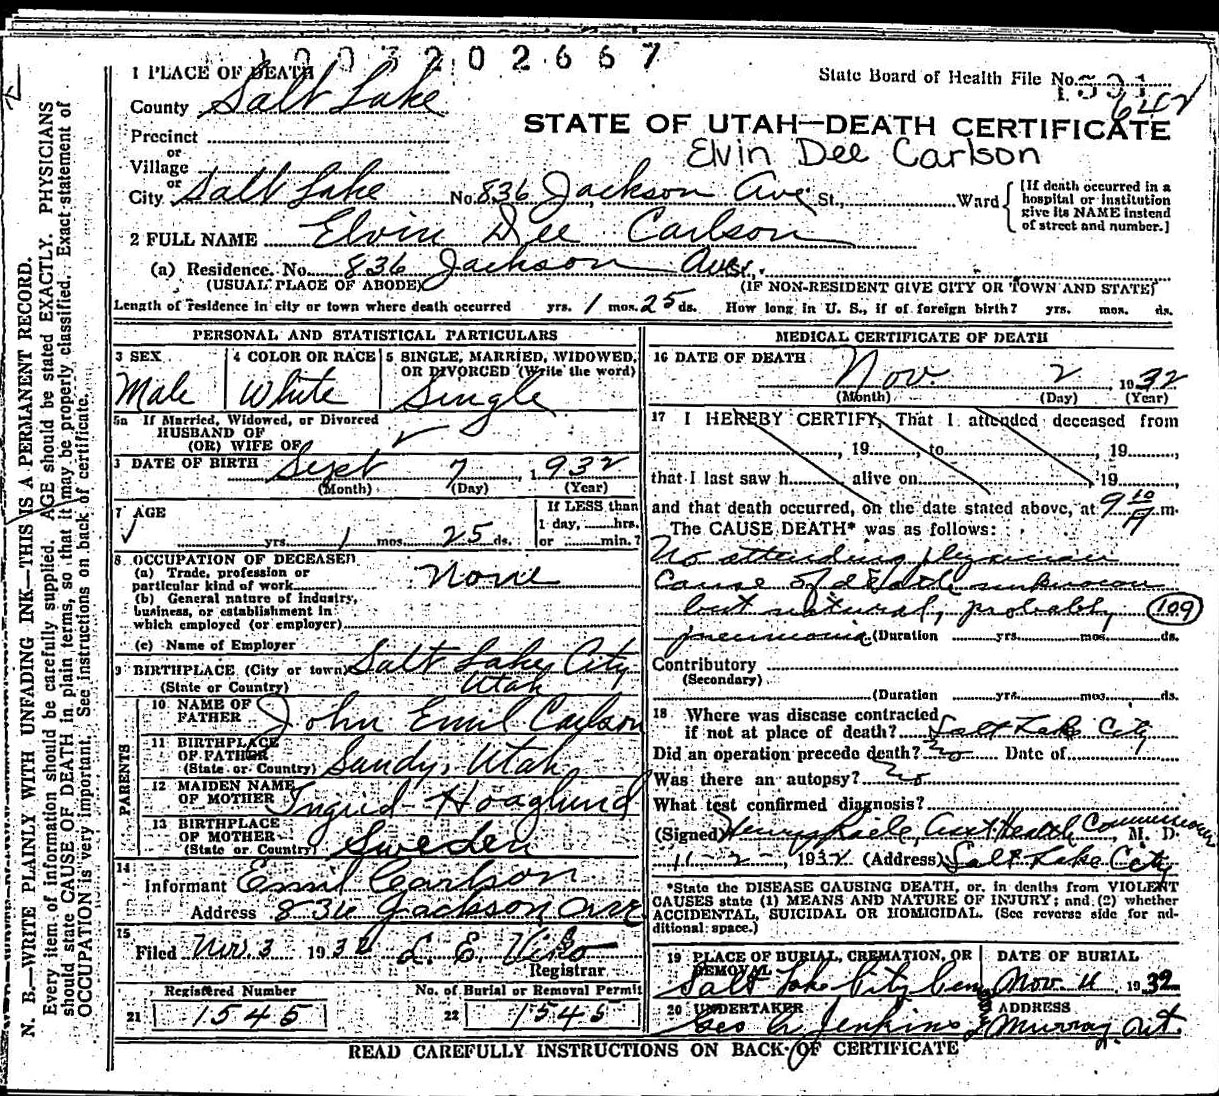 1003202667
1 PLACE OF DEATH
State Board of Health File No.
County Salt Lake
642
STATE OF UTAH—DEATH CERTIFICATE
Precinct
or
Village
Elvin Dee Carlson
or
City Salt Lake No. 836 Jackson Ave St., Ward
[If death occurred in a hospital or institution give its NAME instead of street and number.]
2 FULL NAME Elvin Dee Carlson
(a) Residence. No. 836 Jackson Ave St.
(USUAL PLACE OF ABODE) (IF NON-RESIDENT GIVE CITY OR TOWN AND STATE)
Length of residence in city or town where death occurred yrs. 1 mos. 25 ds. How long in U. S., if of foreign birth? yrs. mos. ds.
PERSONAL AND STATISTICAL PARTICULARS
3 SEX 4 COLOR OR RACE 5 SINGLE, MARRIED, WIDOWED, OR DIVORCED (Write the word)
Male White Single
5a If Married, Widowed, or Divorced
HUSBAND OF
(OR) WIFE OF
DATE OF BIRTH Sept 7, 1932
(Month) (Day) (Year)
7 AGE
If LESS than
1 day, hrs.
yrs. 1 mos. 25 ds. or min.?
8 OCCUPATION OF DECEASED
(a) Trade, profession or
particular kind of work None
(b) General nature of industry,
business, or establishment in
which employed (or employer)
(c) Name of Employer
9 BIRTHPLACE (City or town) Salt Lake City
(State or Country) Utah
PARENTS
10 NAME OF FATHER John Emil Carlson
11 BIRTHPLACE OF FATHER (State or Country) Sandy, Utah
12 MAIDEN NAME OF MOTHER Ingrid Hoaglund
13 BIRTHPLACE OF MOTHER (State or Country) Sweden
14
Informant Emil Carlson
Address 836 Jackson Ave
15
Filed Nov. 3 1932 L. E.
Registrar
Registered Number No. of Burial or Removal Permit
21 1545 22 1545
MEDICAL CERTIFICATE OF DEATH
16 DATE OF DEATH
Nov. 2, 1932
(Month) (Day) (Year)
17 I HEREBY CERTIFY, That I attended deceased from
, 19, to , 19,
that I last saw h alive on 19,
and that death occurred, on the date stated above, at 9 10 A m.
The CAUSE DEATH* was as follows:
No attending physician
Cause of death unknown
but natural, probably 109
pneumonia (Duration yrs. mos. ds.
Contributory
(Secondary)
(Duration yrs. mos. ds.
18 Where was disease contracted
if not at place of death? Salt Lake City
Did an operation precede death? No Date of
Was there an autopsy? No
What test confirmed diagnosis?
(Signed) Health Commissioner, M. D.
11-2-, 1932 (Address) Salt Lake City
*State the DISEASE CAUSING DEATH, or, in deaths from VIOLENT
CAUSES state (1) MEANS AND NATURE OF INJURY; and (2) whether
ACCIDENTAL, SUICIDAL OR HOMICIDAL. (See reverse side for additional space.)
19 PLACE OF BURIAL, CREMATION, OR REMOVAL DATE OF BURIAL
Salt Lake City Cem Nov 4 1932
20 UNDERTAKER ADDRESS
Geo A Jenkins Murray, Ut.
READ CAREFULLY INSTRUCTIONS ON BACK OF CERTIFICATE
N. B.—WRITE PLAINLY WITH UNFADING INK—THIS IS A PERMANENT RECORD.
Every item of information should be carefully supplied. AGE should be stated EXACTLY. PHYSICIANS
should state CAUSE OF DEATH in plain terms, so that it may be properly classified. Exact statement of
OCCUPATION is very important. See instructions on back of certificate.